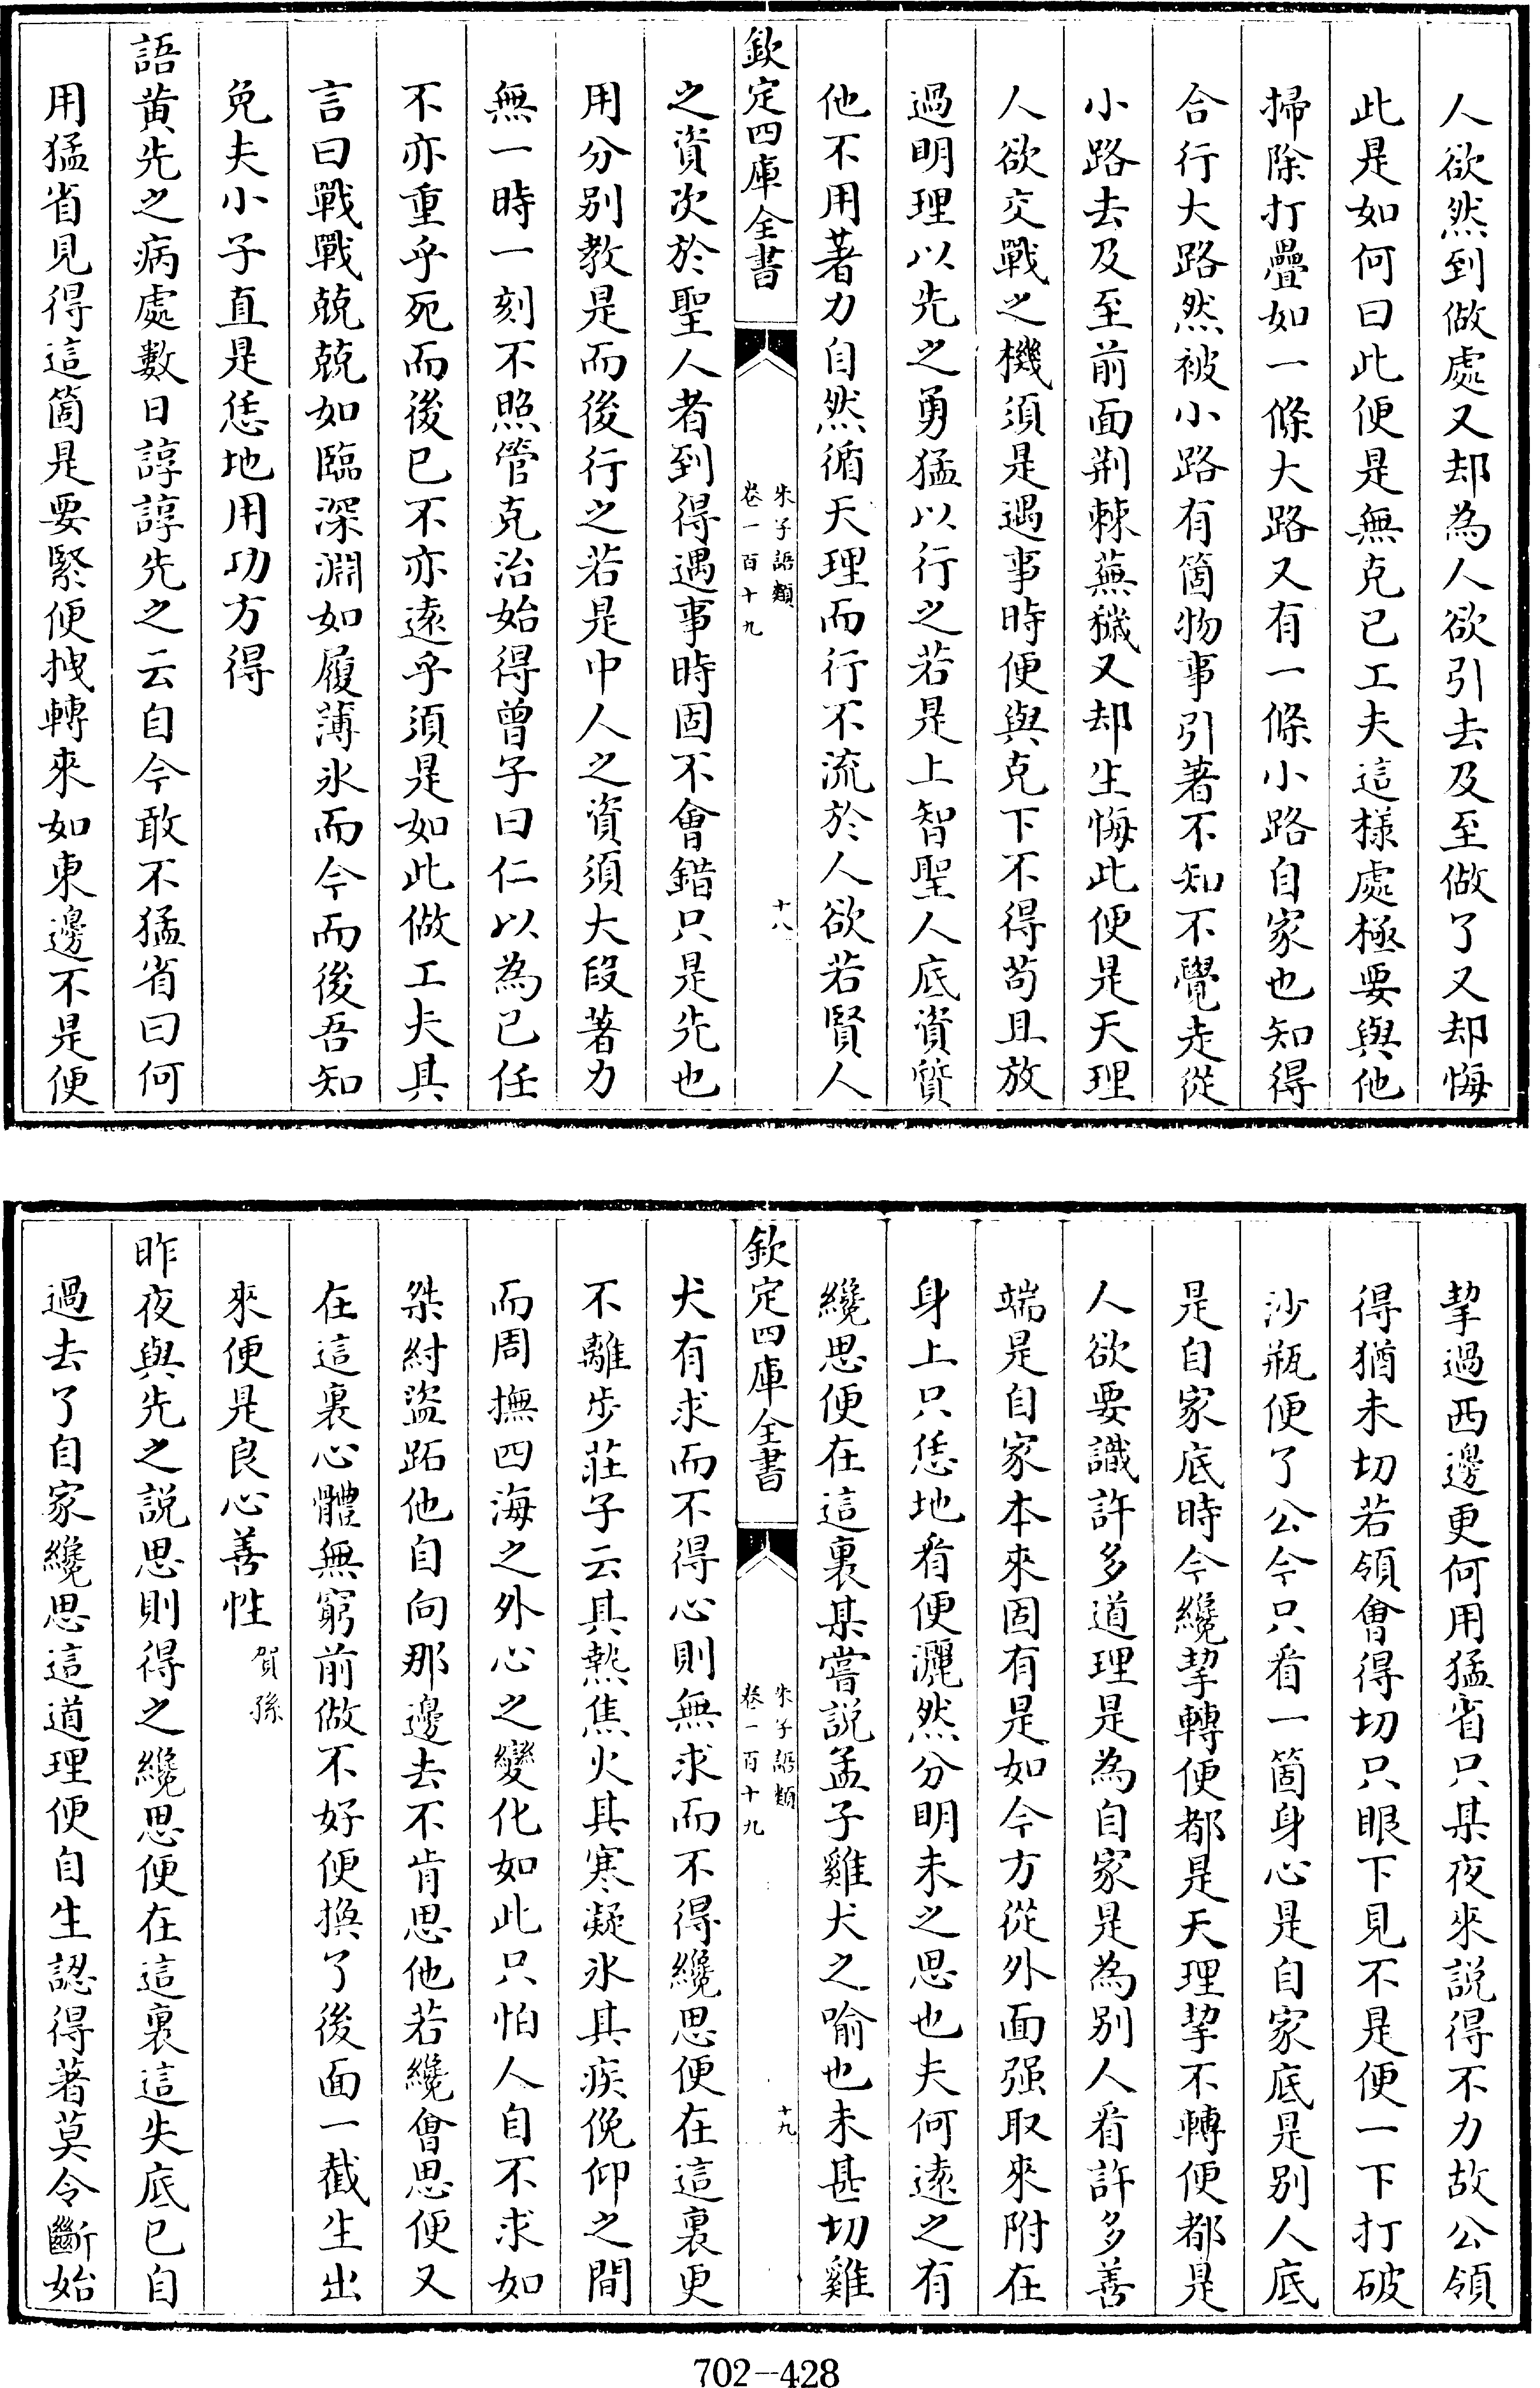 人欲然到做處又却為人欲引去及至做了又却悔
此是如何曰此便是無克己工夫這様處極要與他
掃除打疊如一條大路又有一條小路自家也知得
合行大路然被小路有箇物事引著不知不覺走從
小路去及至前面荆棘蕪穢又却生悔此便是天理
人欲交戰之機須是遇事時便與克下不得苟且放
過明理以先之勇猛以行之若是上智聖人底資質
他不用著力自然循天理而行不流於人欲若賢人
欽定四庫全書
朱子語類
卷一百十九
十八
之資次於聖人者到得遇事時固不會錯只是先也
用分别教是而後行之若是中人之資須大段著力
無一時一刻不照管克治始得曾子曰仁以為己任
不亦重乎死而後已不亦逺乎須是如此做工夫其
言曰戰戰兢兢如臨深淵如履薄氷而今而後吾知
免夫小子直是恁地用功方得
語黄先之病處數日諄諄先之云自今敢不猛省曰何
用猛省見得這箇是要緊便拽轉來如東邊不是便
挈過西邊更何用猛省只某夜來説得不力故公領
得猶未切若領會得切只眼下見不是便一下打破
沙瓶便了公今只看一箇身心是自家底是别人底
是自家底時今纔挈轉便都是天理挈不轉便都是
人欲要識許多道理是為自家是為别人看許多善
端是自家本來固有是如今方從外面强取來附在
身上只恁地看便灑然分明未之思也夫何逺之有
纔思便在這裏某嘗説孟子雞犬之喻也未甚切雞
欽定四庫全書
朱子語類
卷一百十九
十九
犬有求而不得心則無求而不得纔思便在這裏更
不離步莊子云其熱焦火其寒凝氷其疾俛仰之間
而周撫四海之外心之變化如此只怕人自不求如
桀紂盜跖他自向那邊去不肯思他若纔會思便又
在這裏心體無窮前做不好便換了後面一截生出
來便是良心善性賀孫
昨夜與先之説思則得之纔思便在這裏這失底已自
過去了自家纔思這道理便自生認得著莫令斷始
702-428